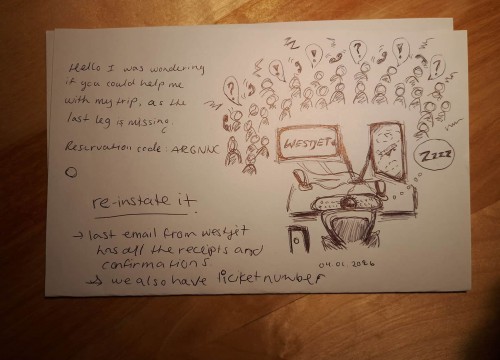 Hello I was wondering
if you could help me
with my trip, as the
last leg is missing.
Reservation code: ARGNNC
re-instate it.
→ last email from westjet
has all the receipts and
confirmations.
→ we also have ticket number
? ! ? ! ? ! ?
WESTJET
Zzzz
04.01.2026